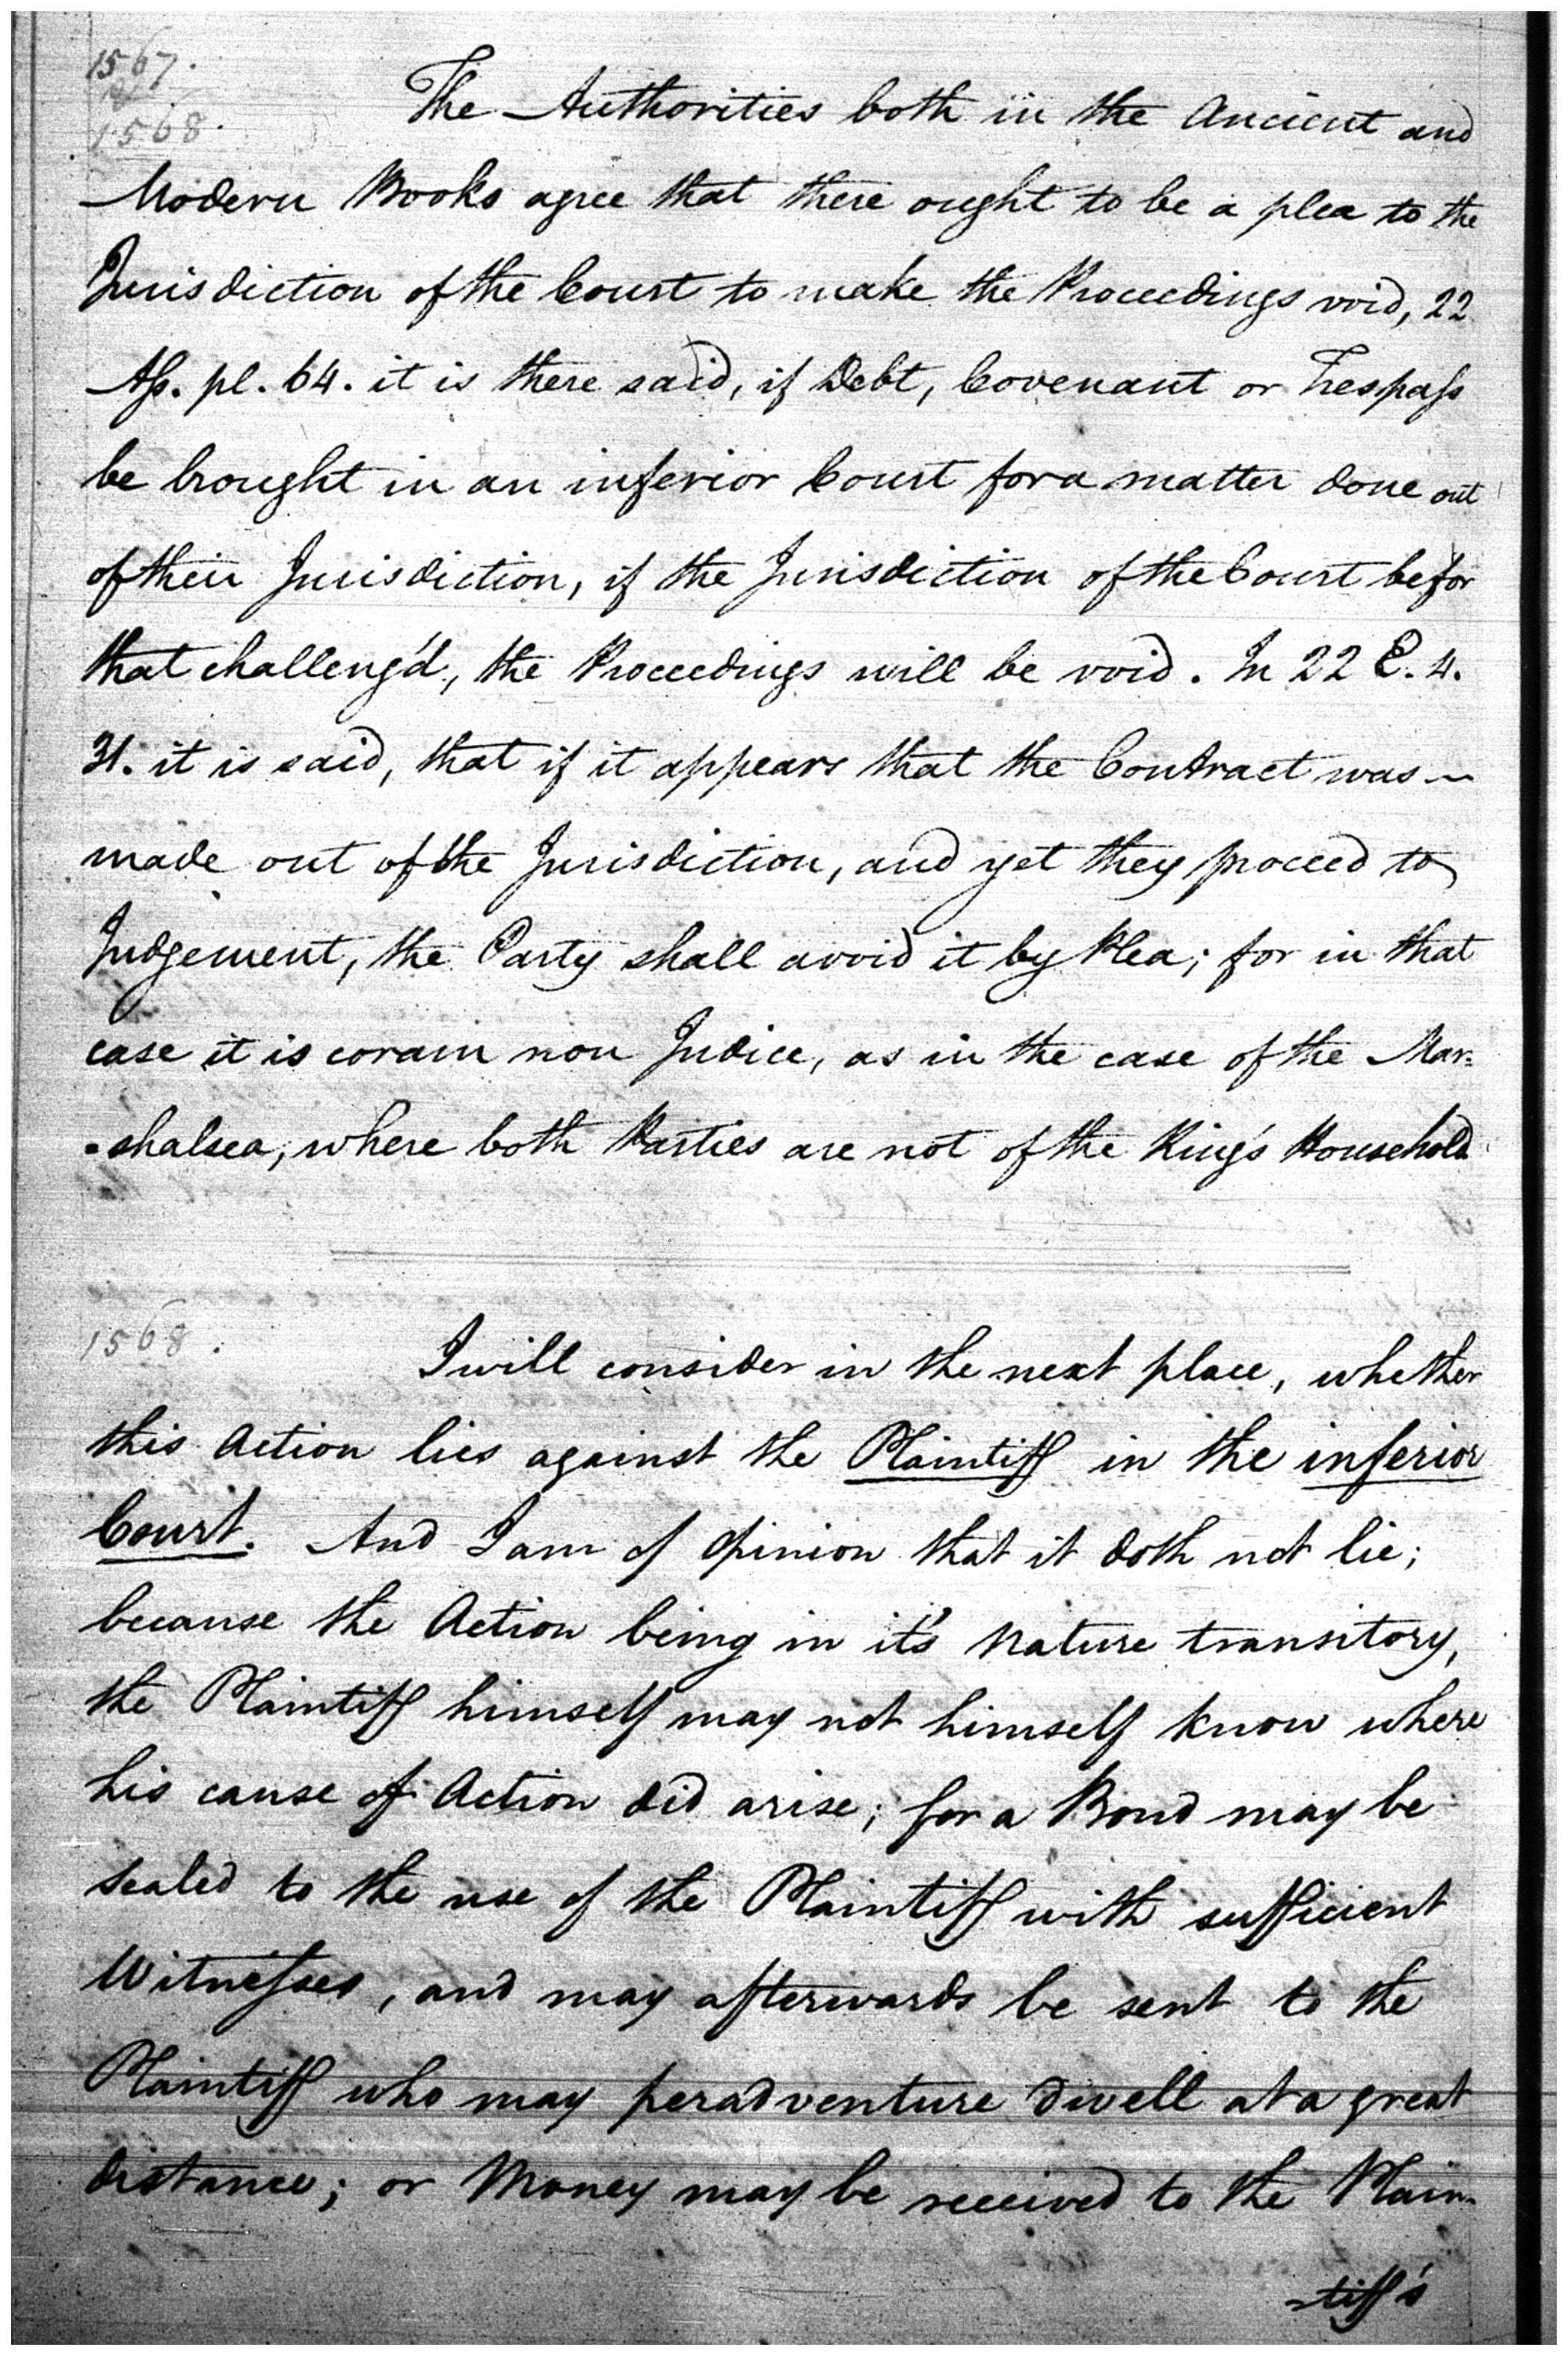 1567.
1568.
The Authorities both in the Ancient and
Modern Books agree that there ought to be a plea to the
Jurisdiction of the Court to make the Proceedings void, 22
Aſs. pl. 64. it is there said, if Debt, Covenant or Treſpaſs
be brought in an inferior Court for a matter done out
of their Jurisdiction, if the Jurisdiction of the Court be for
that challeng'd, the Proceedings will be void. In 22 E. 4.
31. it is said, that if it appears that the Contract was
made out of the Jurisdiction, and yet they proceed to
Judgement, the Party shall avoid it by Plea; for in that
case it is coram non Judice, as in the case of the Mar=
-shalsea, where both Parties are not of the King's Household
1568.
I will consider in the next place, whether
this Action lies against the Plaintiff in the inferior
Court. And I am of opinion that it doth not lie;
because the Action being in it's Nature transitory,
the Plaintiff himself may not himself know where
his cause of Action did arise; for a Bond may be
sealed to the use of the Plaintiff with sufficient
Witneſses, and may afterwards be sent to the
Plaintiff who may peradventure dwell at a great
distance; or Money may be received to the Plain-
-tiff's